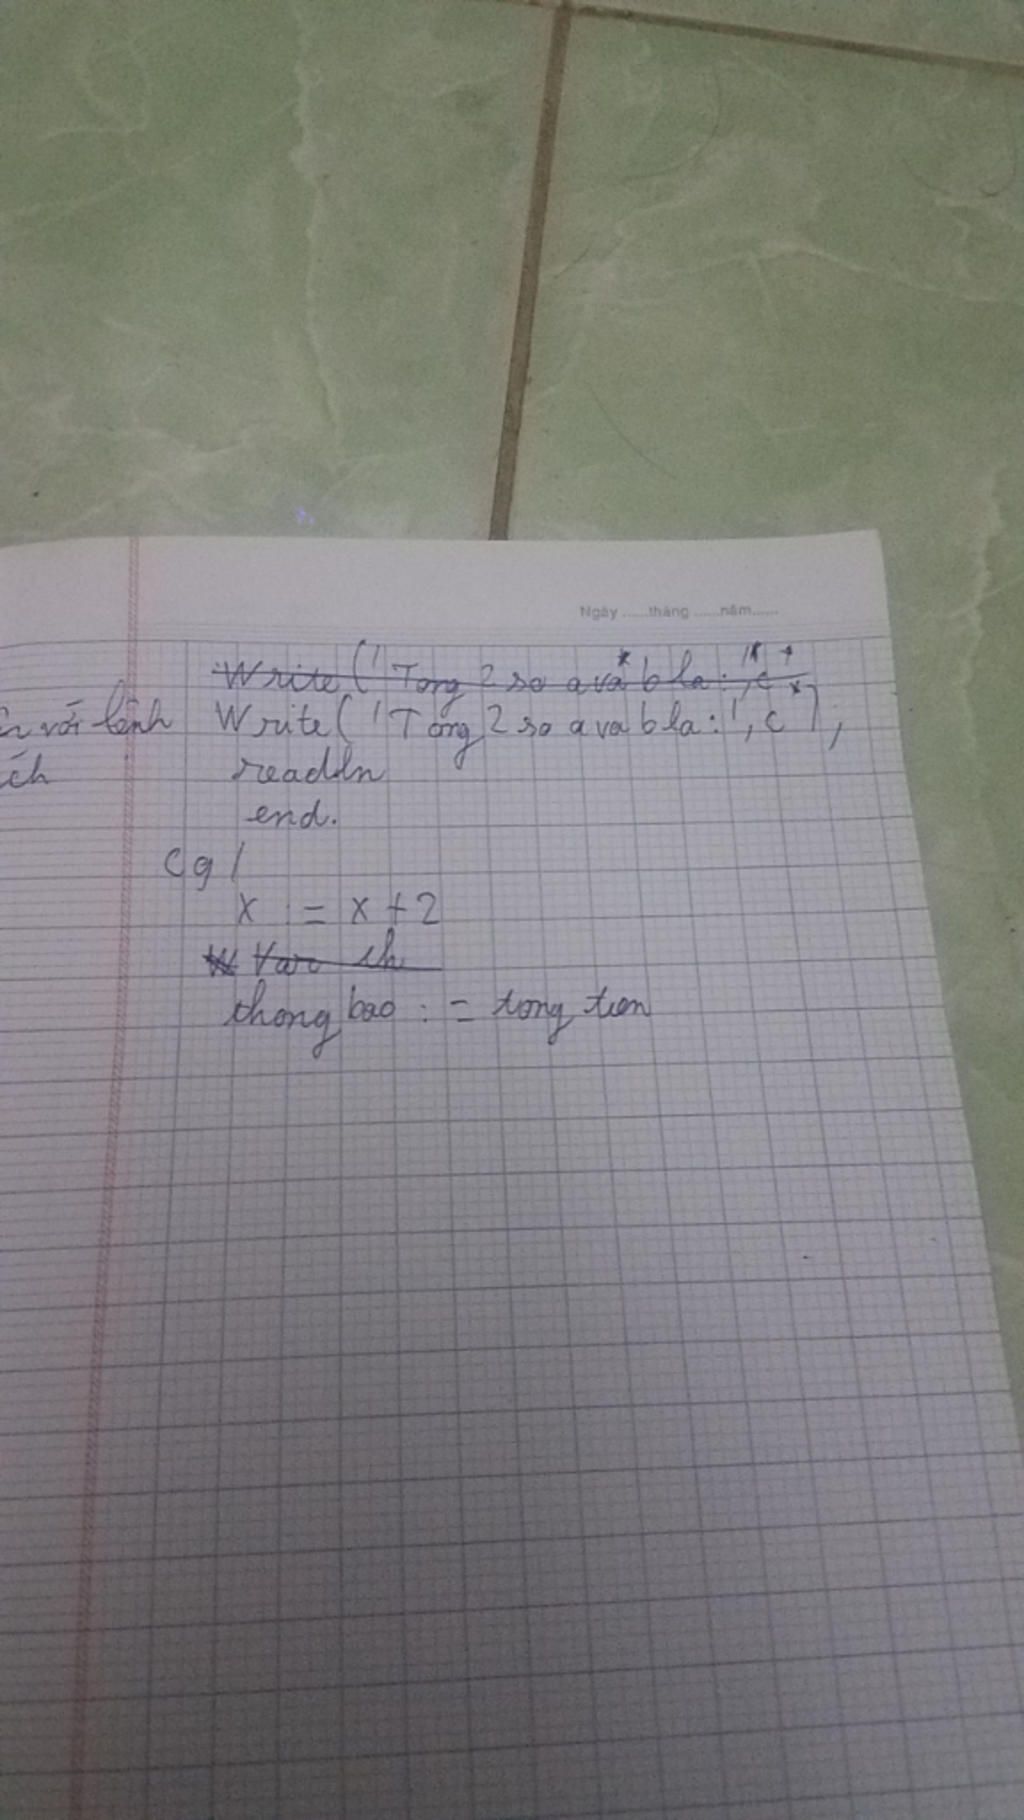 Ngày ......tháng ......năm......
Write ('Tong 2 so a va b la:', c
với lệnh Write ('Tong 2 so a va b la:', c);
ích readln
end.
C9/
x := x + 2
Var ch
thongbao := tong tien